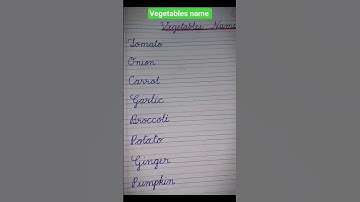 Vegetables name
Vegetables Name
Tomato
Onion
Carrot
Garlic
Broccoli
Potato
Ginger
Pumpkin